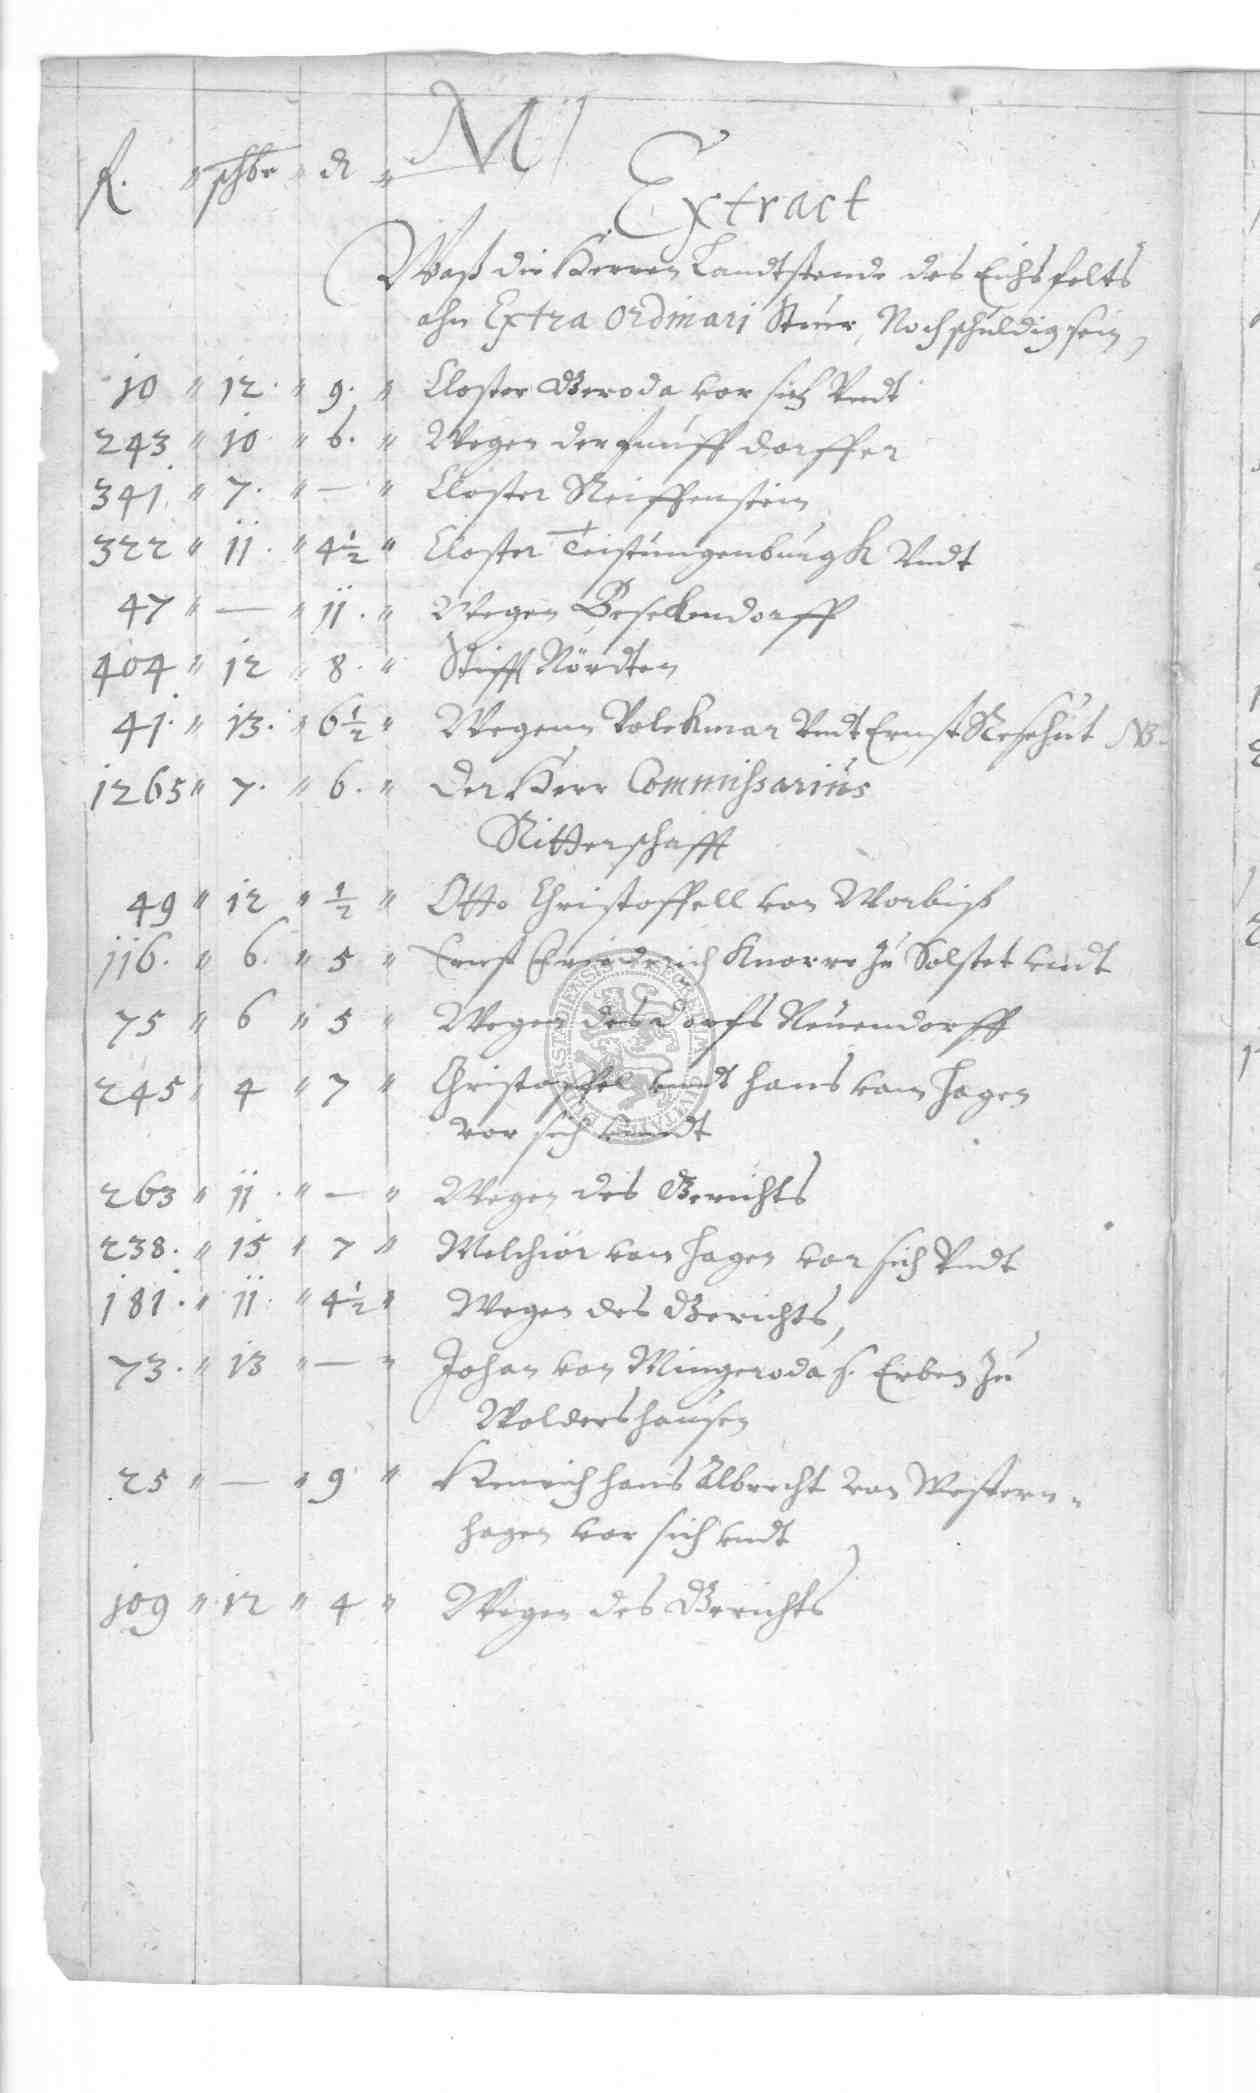 M
f. " schbr " d "
Extract
Waß die Herren Landtstende des Eichsfelts
ahn Extra Ordinari Steur, Noch schuldig sein,
10 " 12 " 9 " Closter Geroda vor sich Undt
243 " 10 " 6 " Wegen der funff dorffer
341 " 7 " — " Closter Reiffenstein
322 " 11 " 4½ " Closter Teistungenburgk Undt
47 " — " 11 " Wegen Besekendorff
404 " 12 " 8 " Stifft Nördten
41 " 13 " 6½ " Wegenn Volckmar Undt Ernst Resehut NB
1265 " 7 " 6 " Der Herr Commissarius
Ritterschafft
49 " 12 " ½ " Otto Christoffell von Worbiß
116 " 6 " 5 " Ernst Friederich Knorre zu Solstet undt
75 " 6 " 5 " Wegen des dorfs Neuendorff
245 " 4 " 7 " Christoffel undt hans vom Hagen
vor sich undt
263 " 11 " — " Wegen des Gerichts
238 " 15 " 7 " Melchior vom Hagen vor sich Undt
181 " 11 " 4½ " Wegen des Gerichts,
73 " 13 " — " Johan von Mingeroda s. Erben zu
Woldershausen
25 " — " 9 " Henrich hans Albrecht von Western=
hagen vor sich undt
109 " 12 " 4 " Wegen des Gerichts